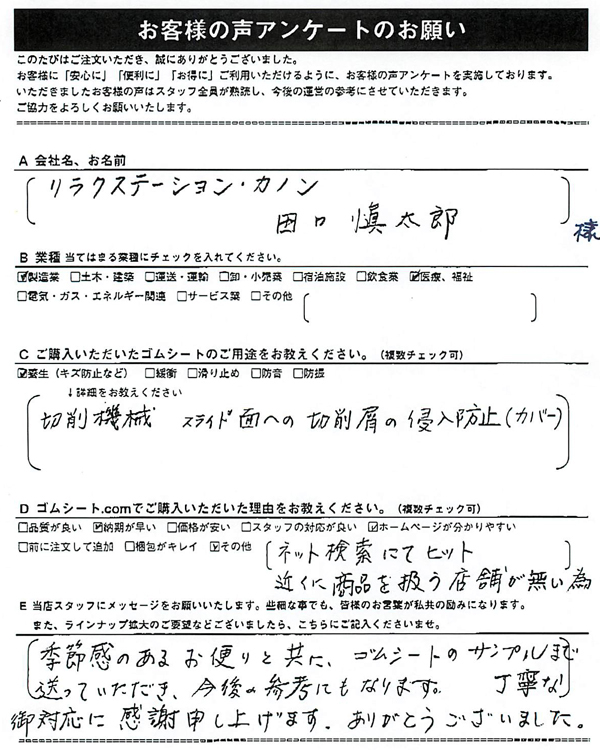 お客様の声アンケートのお願い
このたびはご注文いただき、誠にありがとうございました。
お客様に「安心に」「便利に」「お得に」ご利用いただけるように、お客様の声アンケートを実施しております。
いただきましたお客様の声はスタッフ全員が熟読し、今後の運営の参考にさせていただきます。
ご協力をよろしくお願いいたします。
A 会社名、お名前
リラクステーション・カノン
田口 慎太郎
様
B 業種 当てはまる業種にチェックを入れてください。
☑製造業 □土木・建築 □運送・運輸 □卸・小売業 □宿泊施設 □飲食業 ☑医療、福祉
□電気・ガス・エネルギー関連 □サービス業 □その他
C ご購入いただいたゴムシートのご用途をお教えください。（複数チェック可）
☑養生（キズ防止など） □緩衝 □滑り止め □防音 □防振
↓詳細をお教えください
切削機械 スライド面への切削屑の侵入防止(カバー)
D ゴムシート.comでご購入いただいた理由をお教えください。（複数チェック可）
□品質が良い ☑納期が早い □価格が安い □スタッフの対応が良い ☑ホームページが分かりやすい
□前に注文して追加 □梱包がキレイ ☑その他 ネット検索にてヒット
近くに商品を扱う店舗が無い為
E 当店スタッフにメッセージをお願いいたします。些細な事でも、皆様のお言葉が私共の励みになります。
また、ラインナップ拡大のご要望などございましたら、こちらにご記入くださいませ。
季節感のあるお便りと共に、ゴムシートのサンプルまで
送っていただき、今後の参考にもなります。 丁寧な
御対応に感謝申し上げます。ありがとうございました。